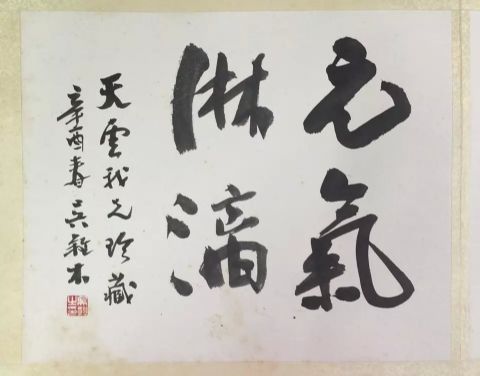 元氣
淋漓
天雲我兄珍藏
辛酉春吳木